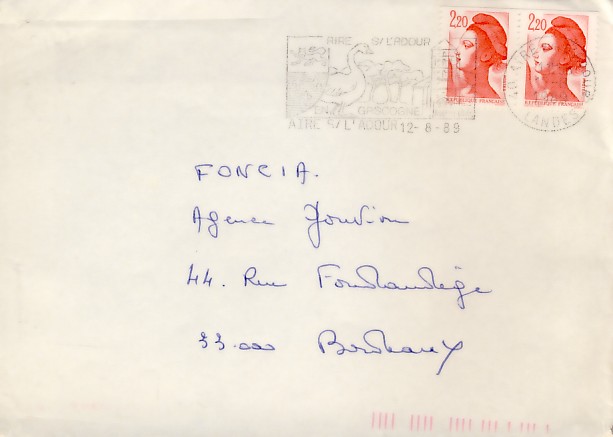 AIRE S/L'ADOUR
2,20 2,20
REPUBLIQUE FRANÇAISE REPUBLIQUE FRANÇAISE
GASCOGNE
LANDES
AIRE S/L'ADOUR 12-8-89
FONCIA.
Agence Jouvion
44. Rue Fondaudège
33.000 Bordeaux